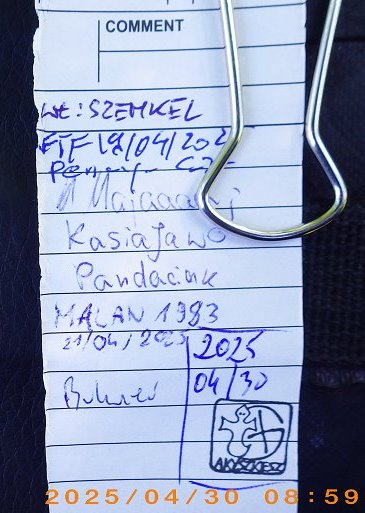 COMMENT
WŁ: SZEMKEL
FTF 19/04/202
Majaaaa
KasiaJawo
Pandacink
MALAN 1983
21/04/2025
2025
04/30
2025/04/30 08:59